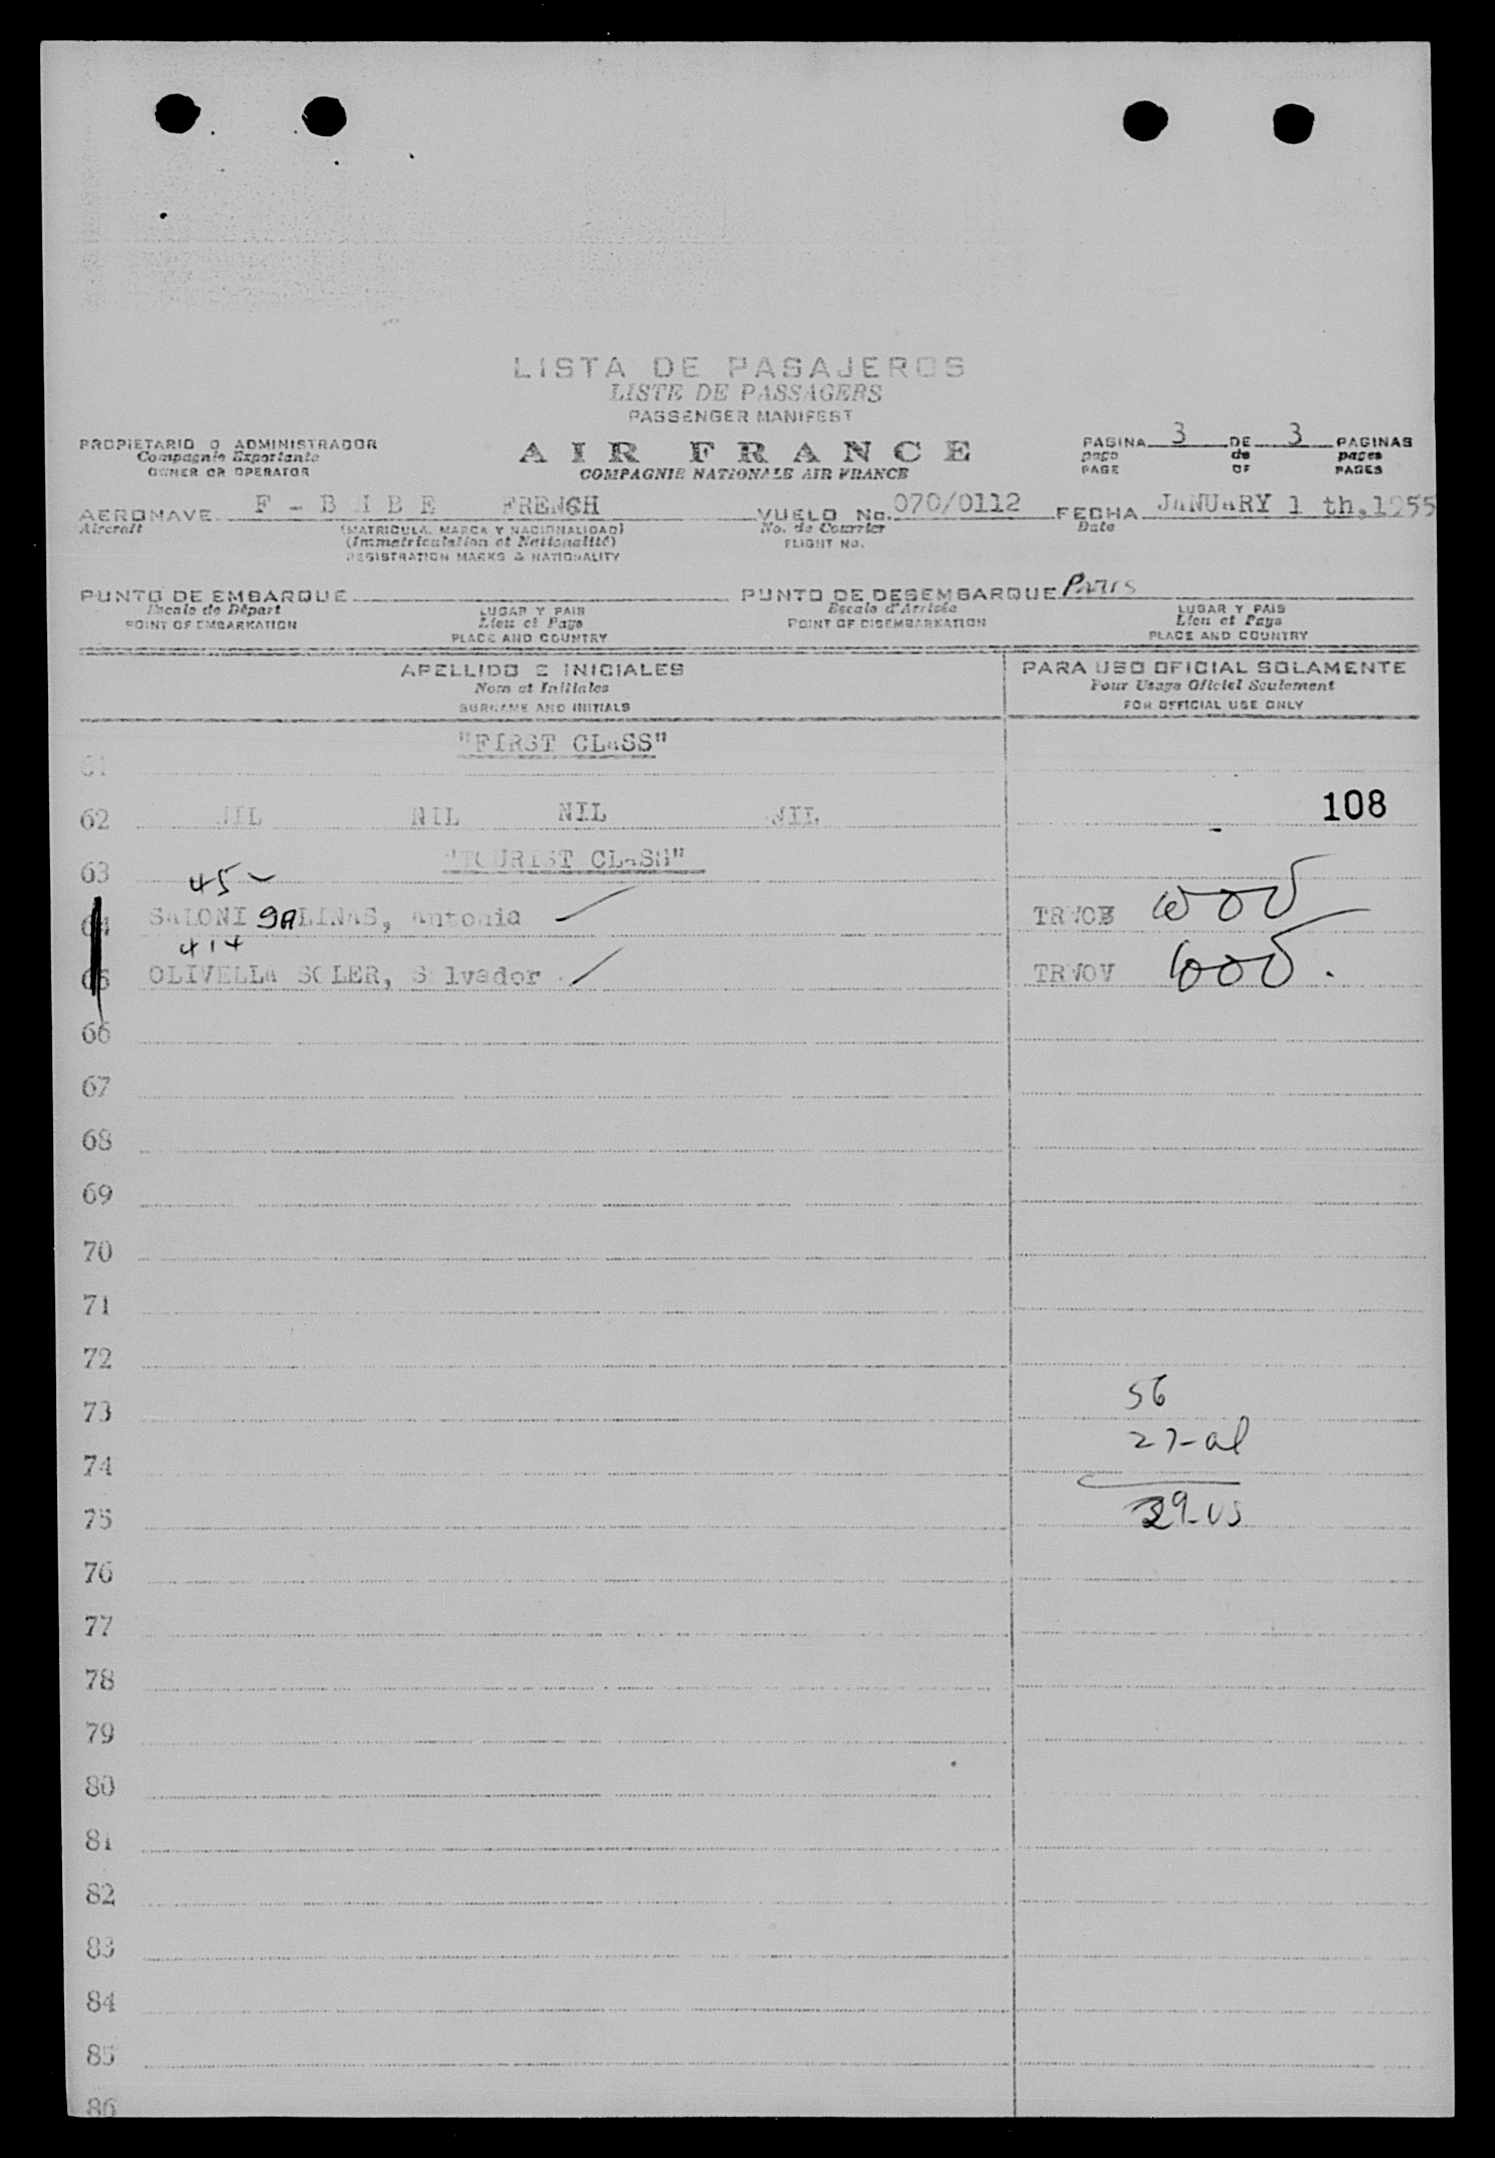 LISTA DE PASAJEROS
LISTE DE PASSAGERS
PASSENGER MANIFEST
PROPIETARIO O ADMINISTRADOR
Compagnie Exportante
OWNER OR OPERATOR
AIR FRANCE
COMPAGNIE NATIONALE AIR FRANCE
PAGINA 3 DE 3 PAGINAS
page de pages
PAGE OF PAGES
AERONAVE F - B H B E FRENCH VUELO No. 070/0112 FECHA JANUARY 1 th, 1955
Aircraft (MATRICULA, MARCA Y NACIONALIDAD) No. de Courrier Date
(Immatriculation et Nationalité) FLIGHT No.
REGISTRATION MARKS & NATIONALITY
PUNTO DE EMBARQUE PUNTO DE DESEMBARQUE Paris
Escale de Départ LUGAR Y PAIS Escale d'Arrivée LUGAR Y PAIS
POINT OF EMBARKATION Lieu et Pays POINT OF DISEMBARKATION Lieu et Pays
PLACE AND COUNTRY PLACE AND COUNTRY
APELLIDO E INICIALES PARA USO OFICIAL SOLAMENTE
Nom et Initiales Pour Usage Officiel Seulement
SURNAME AND INITIALS FOR OFFICIAL USE ONLY
"FIRST CLASS"
61
62 NIL NIL NIL NIL 108
"TOURIST CLASS"
63
45
64 SALONI SALINAS, Antonia
414
65 OLIVELLA SOLER, Salvador TRWOV
66
67
68
69
70
71
72
56
73
27-al
74
29-US
75
76
77
78
79
80
81
82
83
84
85
86